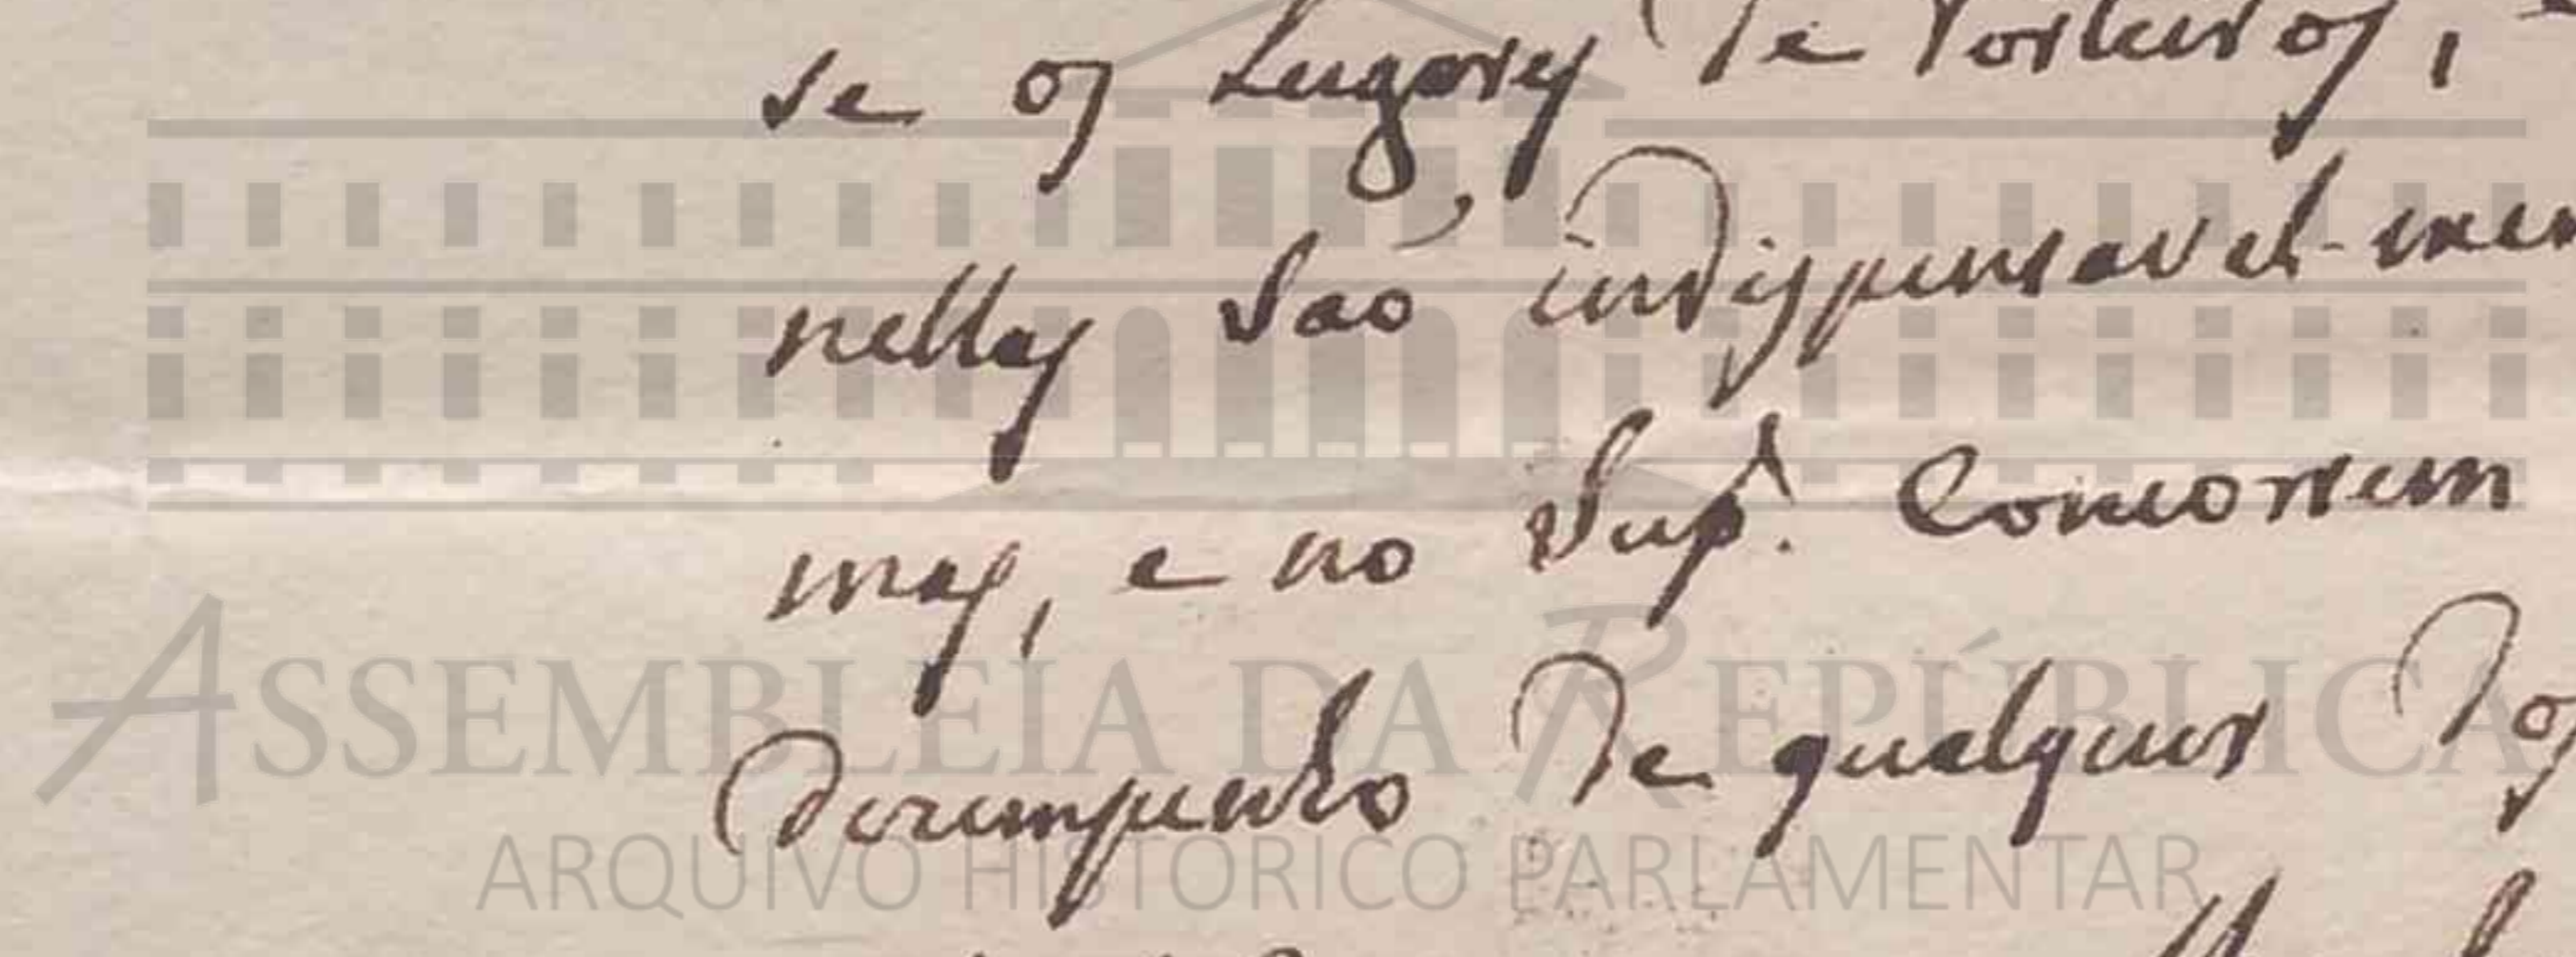 se os Lugares de Porteiros,
nellas saó indispensavel-men
mas, e no Sup.e Concorrem
dezempenho de qualquer dos
ASSEMBLEIA DA REPÚBLICA
ARQUIVO HISTÓRICO PARLAMENTAR